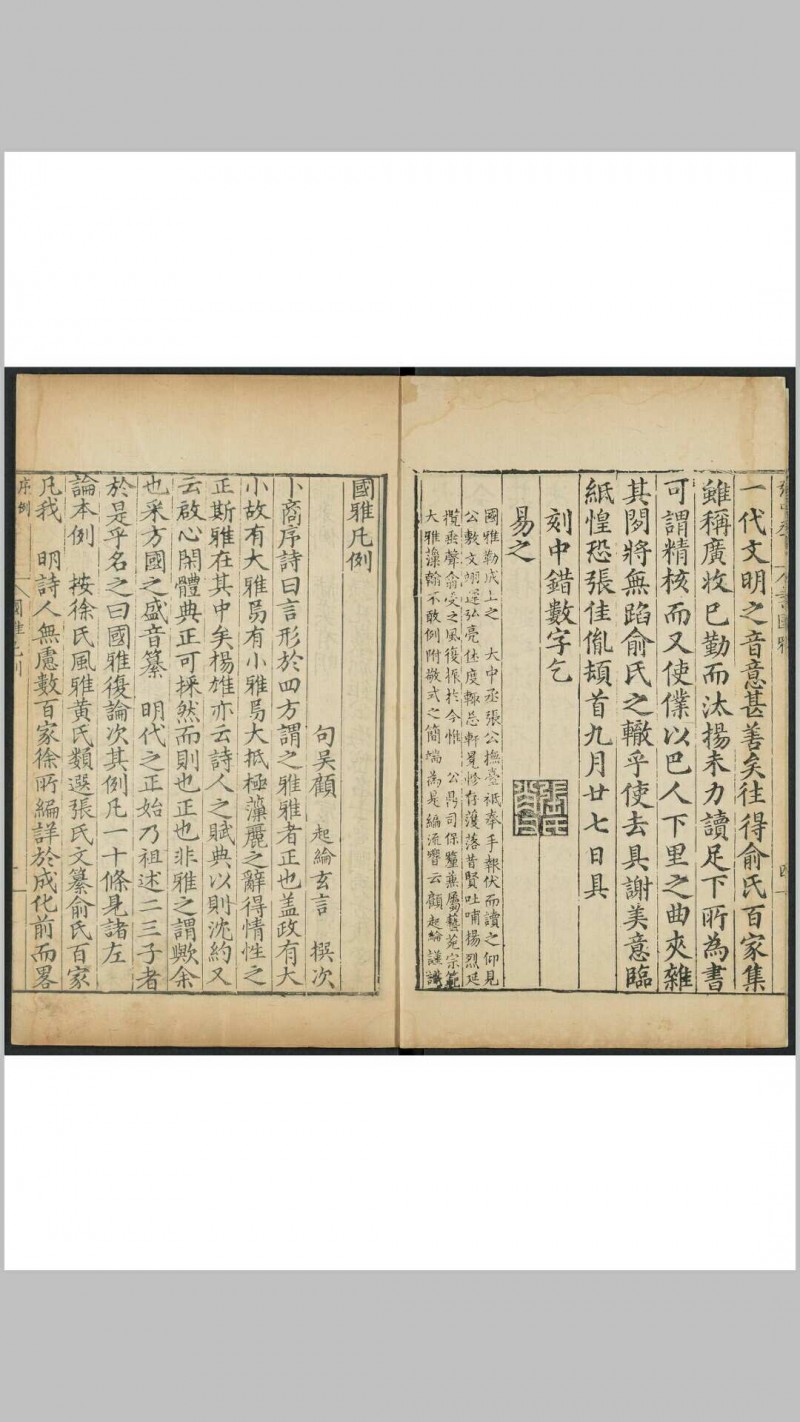 一代文明之音意甚善矣往得俞氏百家集
雖稱廣收已勤而汰揚未力讀足下所為書
可謂精核而又使僕以巴人下里之曲夾雜
其閒將無蹈俞氏之轍乎使去具謝美意臨
紙惶恐張佳胤頓首九月廿七日具
刻中錯數字乞
易之
國雅勒成上之 大中丞張公撫臺祗奉手報伏而讀之仰見
公敷文翊運弘亮佳度輙忘軒冕修存濩落昔賢吐哺揚烈延
攬垂聲俞受之風復振於今惟 公鼎司保釐燕屬藝苑宗範
大雅藻翰不敢例附敬弍之簡端為是編流響云顧起綸謹識
國雅凡例
句吳顧 起綸玄言 撰次
卜商序詩曰言形於四方謂之雅雅者正也盖政有大
小故有大雅焉有小雅焉大抵極藻麗之辭得情性之
正斯雅在其中矣楊雄亦云詩人之賦典以則沈約又
云啟心閑體典正可採然而則也正也非雅之謂歟余
也采方國之盛音纂 明代之正始乃祖述二三子者
於是乎名之曰國雅復論次其例凡一十條見諸左
論本例 按徐氏風雅黃氏類選張氏文纂俞氏百家
凡我 明詩人無慮數百家徐所編詳於成化前而畧
序例